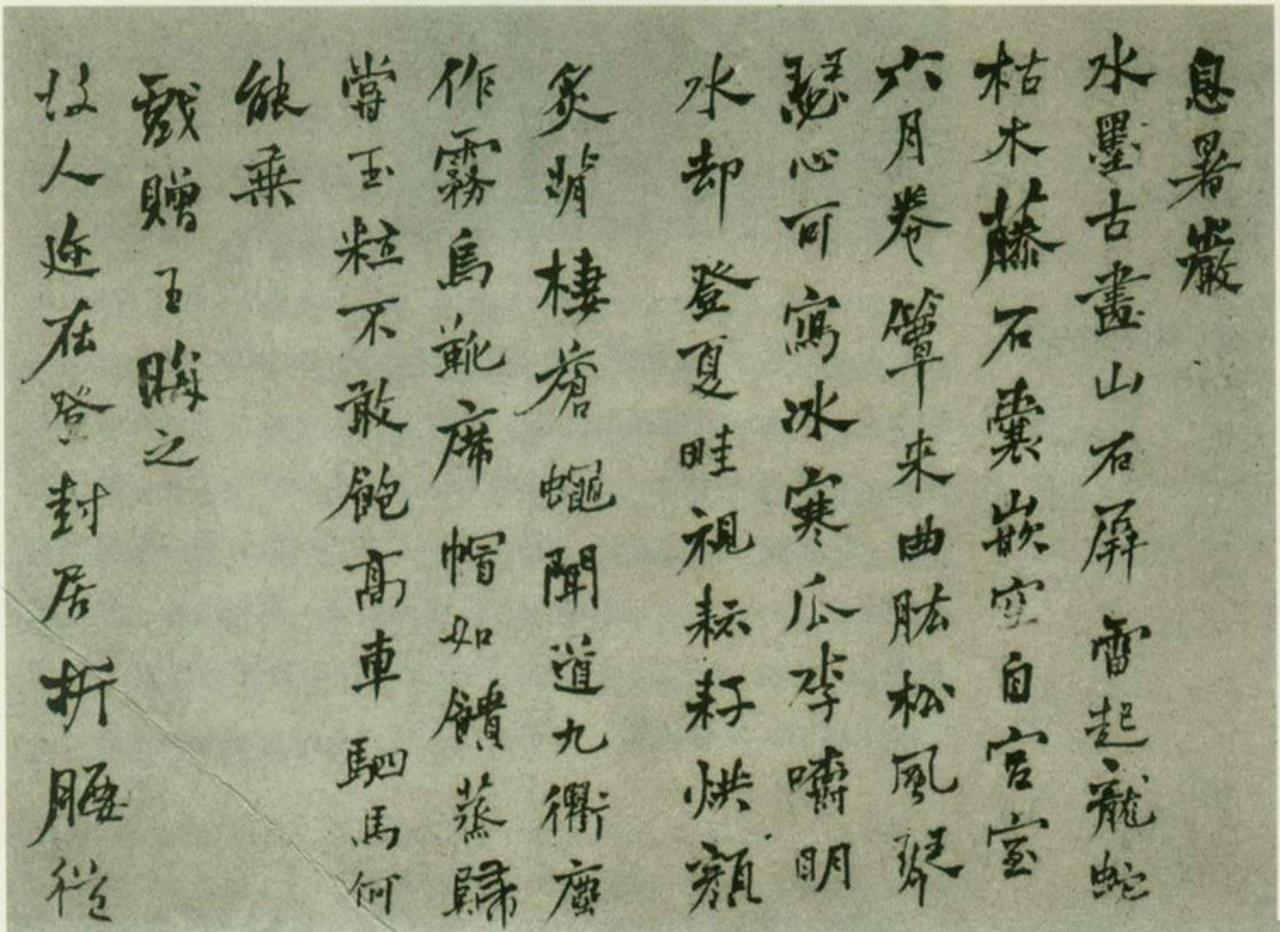 息暑巖
水墨古畫山石屏雷起龍蛇
枯木藤石囊嵌空自宮室
六月卷簟来曲肱松風琴
瑟心可寫冰寒瓜李嚼明
水却登夏畦視耘耔烘顏
炙背棲蒼蠅聞道九衢塵
作霧烏靴席帽如饙蒸歸
嘗玉粒不敢飽高車駟馬何
能乗
戲贈王晦之
故人迹在登封居折腰從